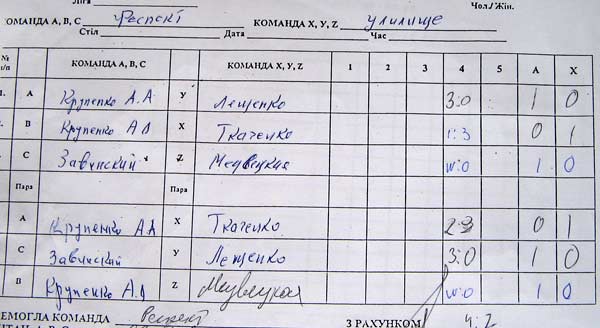 Ліга Чол./Жін.
ОМАНДА А, В, С Респект КОМАНДА X, Y, Z училище
Стіл Дата Час
№ п/п КОМАНДА А, В, С КОМАНДА X, Y, Z 1 2 3 4 5 А Х
1. А Крупенко А.А У Лещенко 3:0 1 0
В Крупенко А.А Х Ткаченко 1:3 0 1
С Завинский Z Медвецкая w:0 1 0
Пара Пара
А Крупенко А.А Х Ткаченко 2:3 0 1
С Завинский У Лещенко 3:0 1 0
В Крупенко А.А Z Медвецкая w:0 1 0
ЕМОГЛА КОМАНДА Респект З РАХУНКОМ 4:2